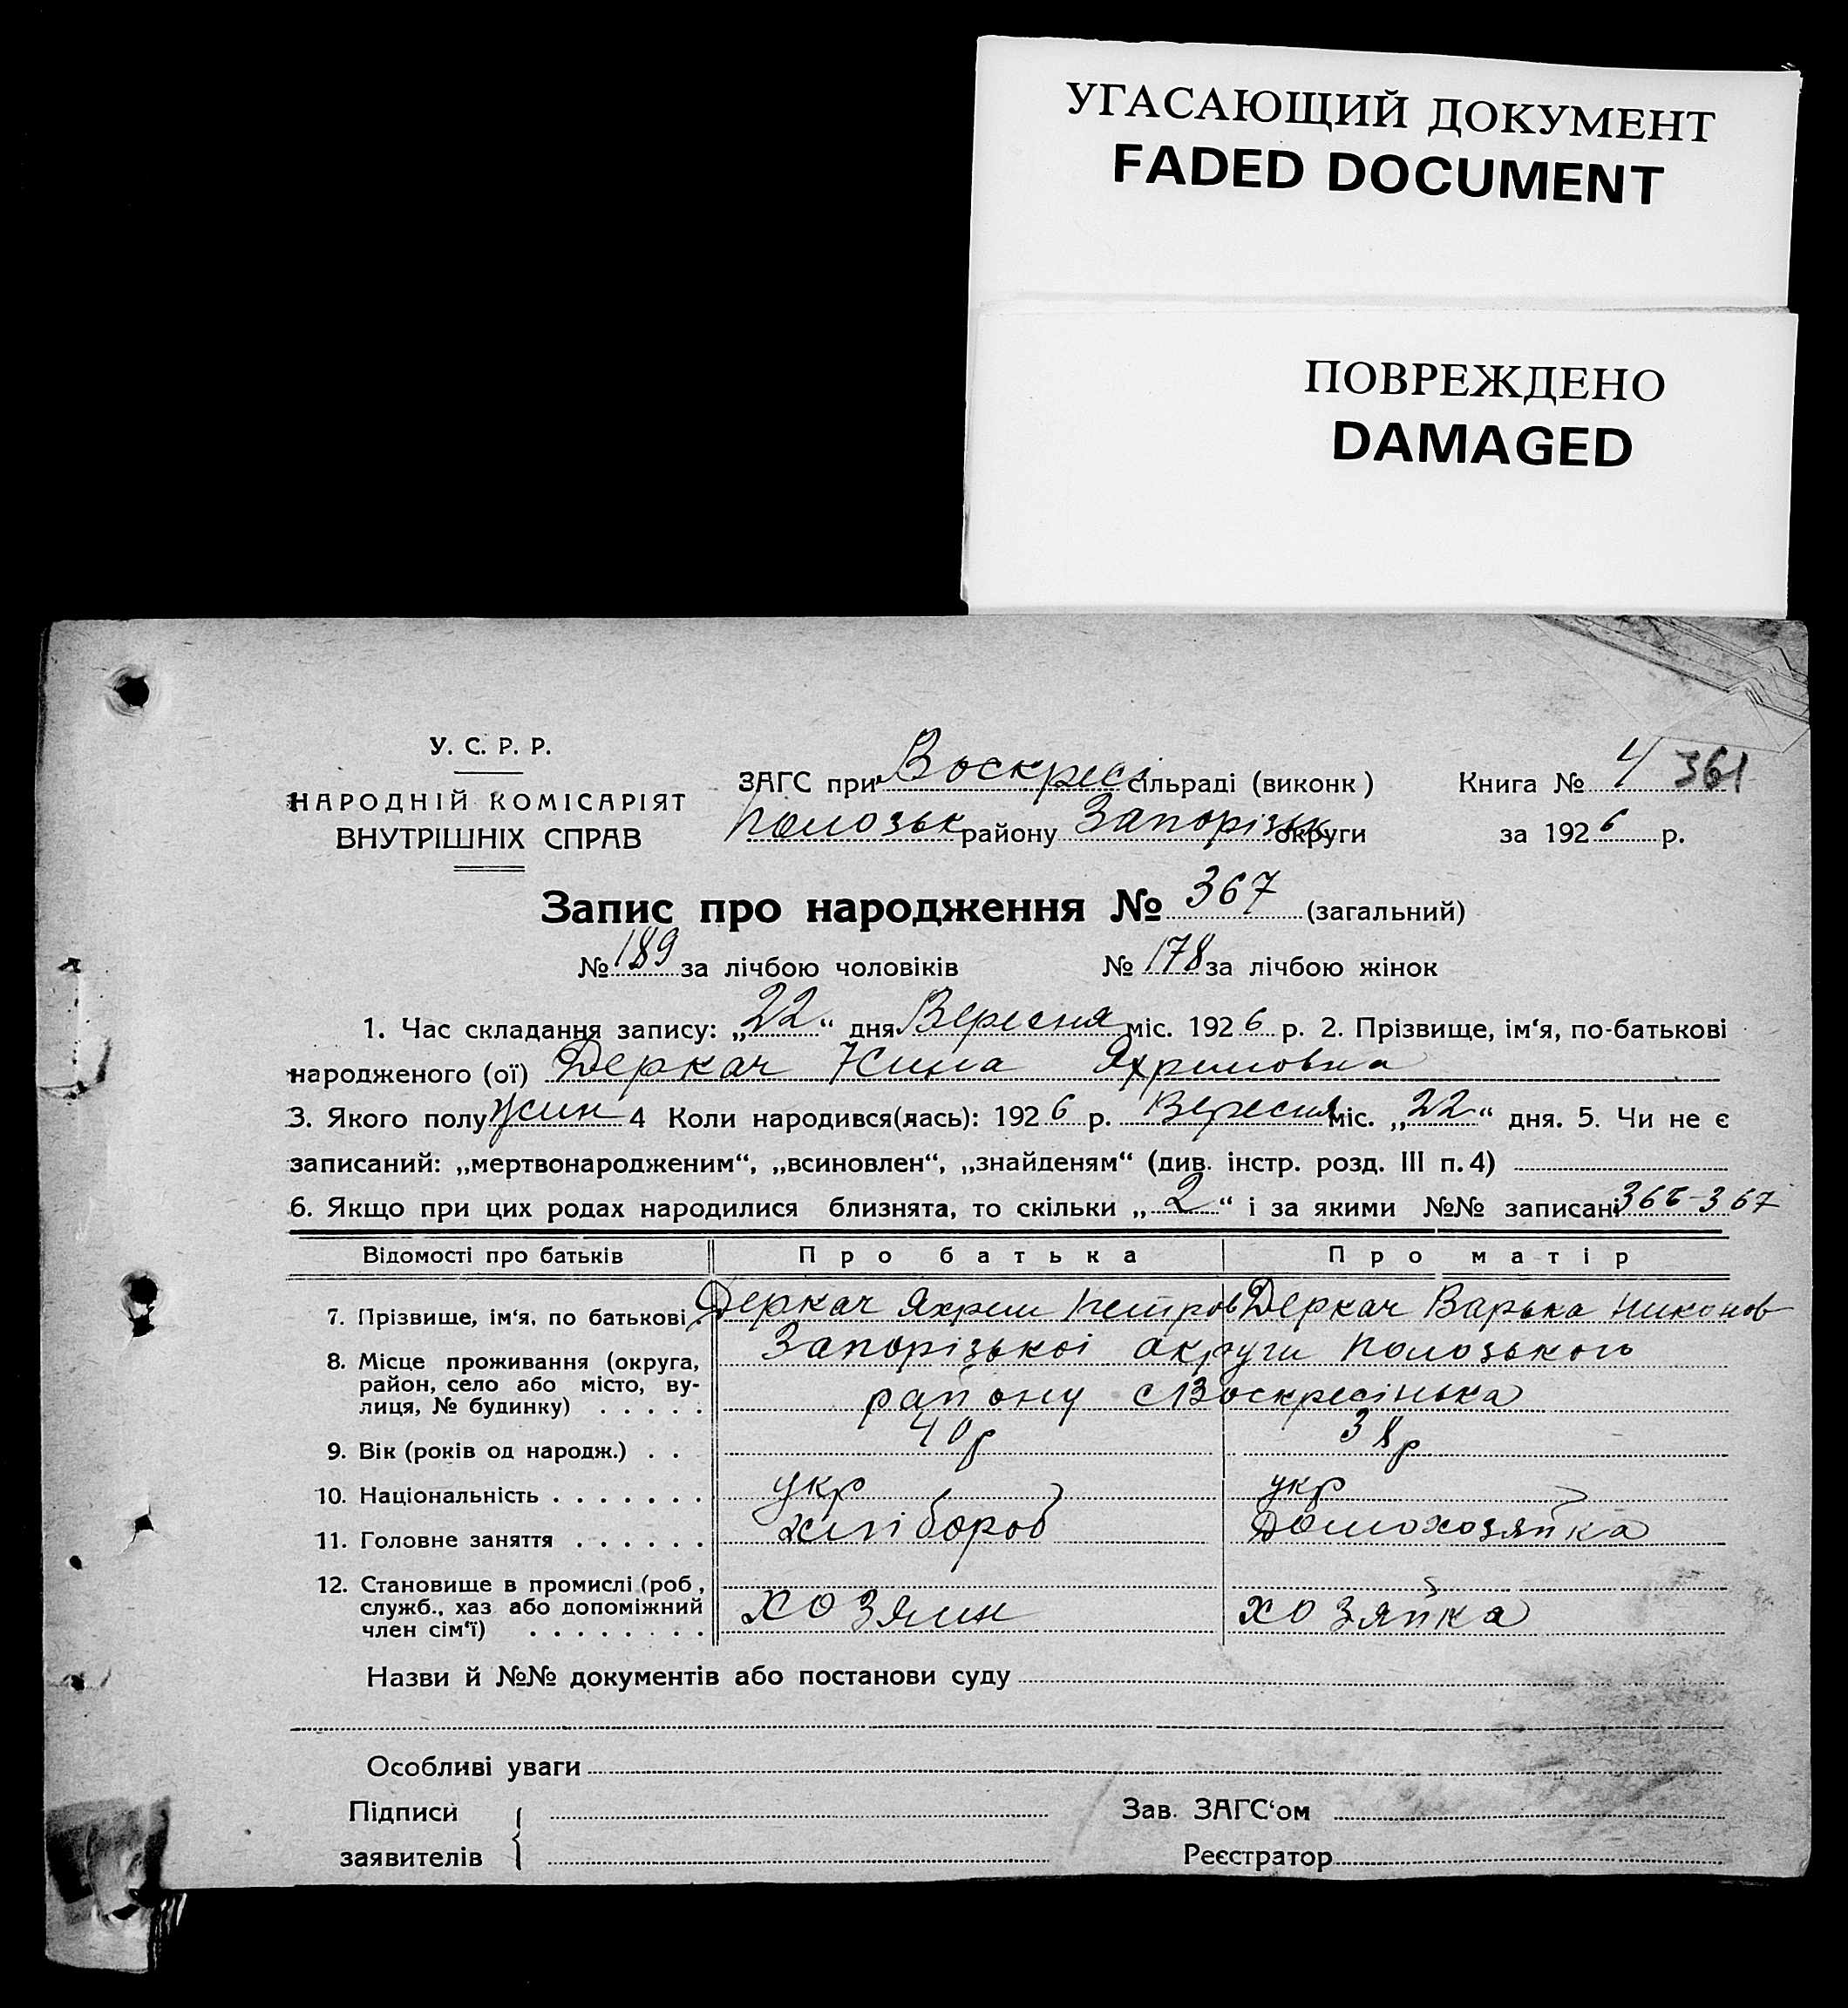 УГАСАЮЩИЙ ДОКУМЕНТ
FADED DOCUMENT
ПОВРЕЖДЕНО
DAMAGED
У. С. Р. Р.
НАРОДНІЙ КОМІСАРІЯТ
ВНУТРІШНІХ СПРАВ
ЗАГС при Воскресі сільраді (виконк) Книга № 4 361
Полозьк району Запорізьк округи за 1926 р.
Запис про народження № 367 (загальний)
№ 189 за лічбою чоловіків № 178 за лічбою жінок
1. Час складання запису: „22“ дня Вересня міс. 1926 р. 2. Прізвище, ім‘я, по-батькові
народженого (ої) Деркач Нина Яхримовна
3. Якого полу жин 4 Коли народився(лась): 1926 р. Вересня міс. „22“ дня. 5. Чи не є
записаний: „мертвонародженим“, „всиновлен“, „знайденям“ (див. інстр. розд. III п. 4)
6. Якщо при цих родах народилися близнята, то скільки „2“ і за якими №№ записані 366-367
Відомості про батьків Про батька Про матір
7. Прізвище, ім‘я, по батькові Деркач Яхрим Петров Деркач Варька Никонов
8. Місце проживання (округа, Запорізької акруги Полозького
район, село або місто, ву-
лиця, № будинку) району с Воскресінька
9. Вік (років од народж.) 40р 38р
10. Національність укр укр
11. Головне заняття хлібороб Домохозяйка
12. Становище в промислі (роб,
служб., хаз або допоміжний хозяин хозяйка
член сім‘ї)
Назви й №№ документів або постанови суду
Особливі уваги
Підписи Зав. ЗАГС‘ом
заявителів Реєстратор